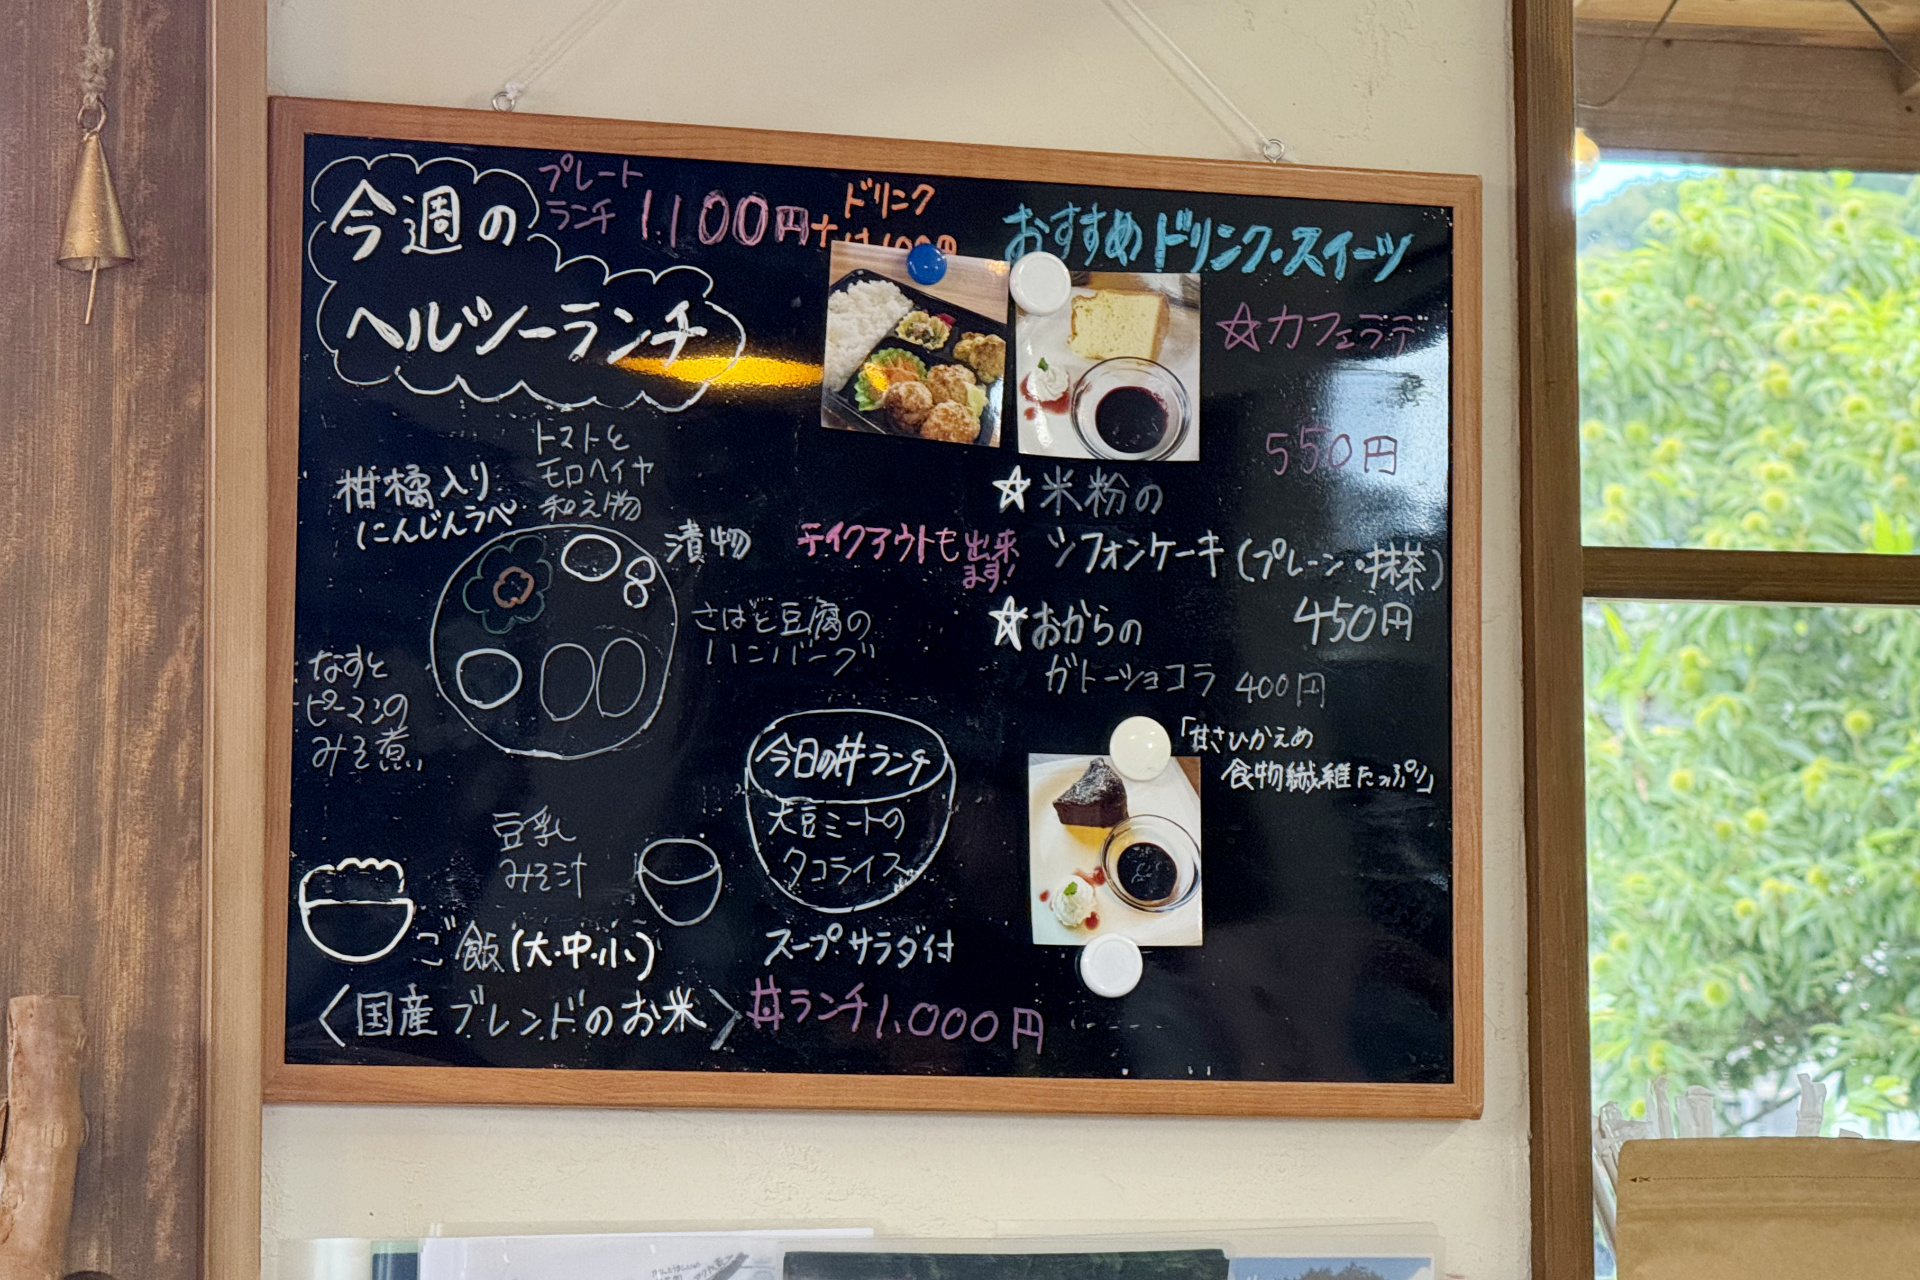 今週の
ヘルシーランチ
プレート
ランチ 1,100円+
ドリンク
トマトと
モロヘイヤ
和え物
柑橘入り
にんじんラペ
漬物
さばと豆腐の
ハンバーグ
なすと
ピーマンの
みそ煮
豆乳
みそ汁
ご飯(大・中・小)
〈国産ブレンドのお米〉
テイクアウトも出来
ます!
今日の丼ランチ
大豆ミートの
タコライス
スープ・サラダ付
丼ランチ1,000円
おすすめドリンク・スイーツ
☆カフェラテ
550円
☆米粉の
シフォンケーキ(プレーン・抹茶)
450円
☆おからの
ガトーショコラ 400円
「甘さひかえめ
食物繊維たっぷり」